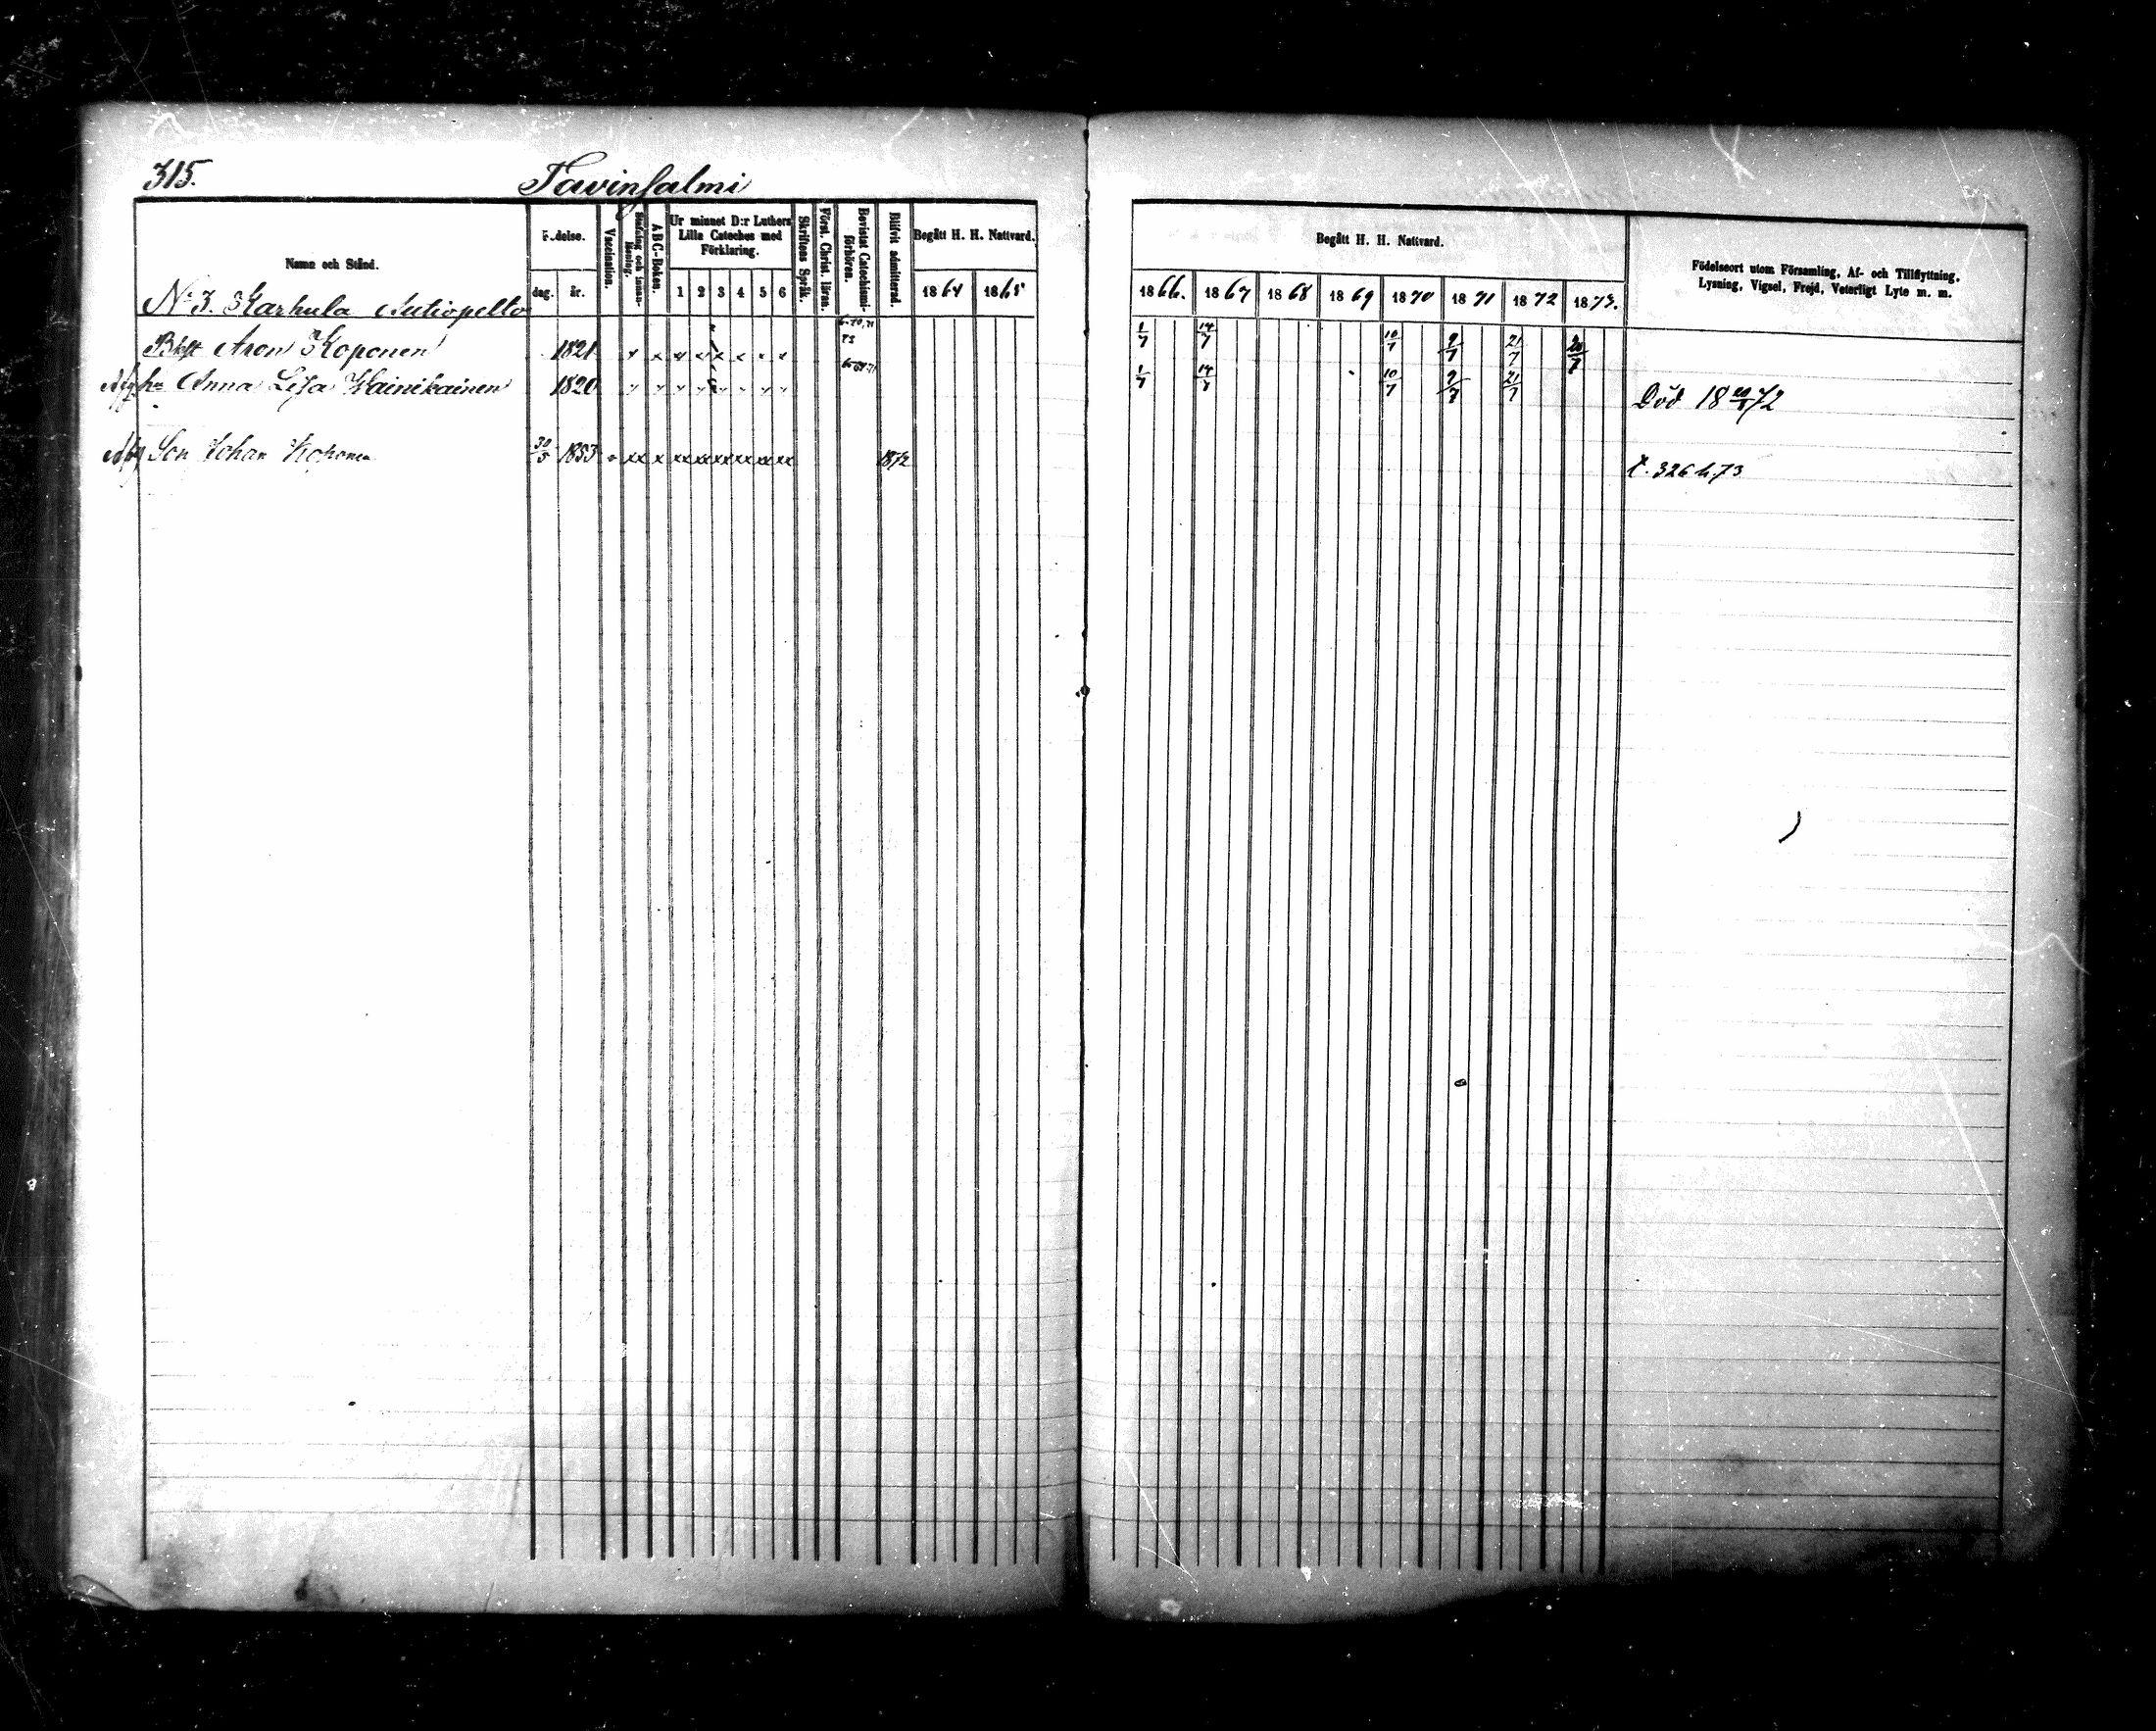 315.
Tavinsalmi
Namn och Stånd.
Födelse.
dag. år.
Vaccination.
Stafning och innanläsning.
ABC-Boken.
Ur minnet D:r Luthers Lilla Cateches med Förklaring.
1 2 3 4 5 6
Skriftens Språk.
Först. Christ. läran.
Bevistat Catechismiförhören.
Blifvit admitterad.
Begått H. H. Nattvard.
1864 1865
Begått H. H. Nattvard.
1866. 1867 1868 1869 1870 1871 1872 1873.
Födelseort utom Församling, Af- och Tillflyttning,
Lysning, Vigsel, Frejd, Veterligt Lyte m. m.
No 3. Karhula Autiopelto
Aron Koponen 1821 x x x x x x x x 1/7 14/7 10/7 9/7 21/7 20/7
hu Anna Lisa Wainikainen 1820 1/7 14/7 10/7 9/7 21/7 Död 18 72
Son Johan Koponen 30/5 1853 xx x xx xx xx xx xx xx 1872 t. 326 h. 73